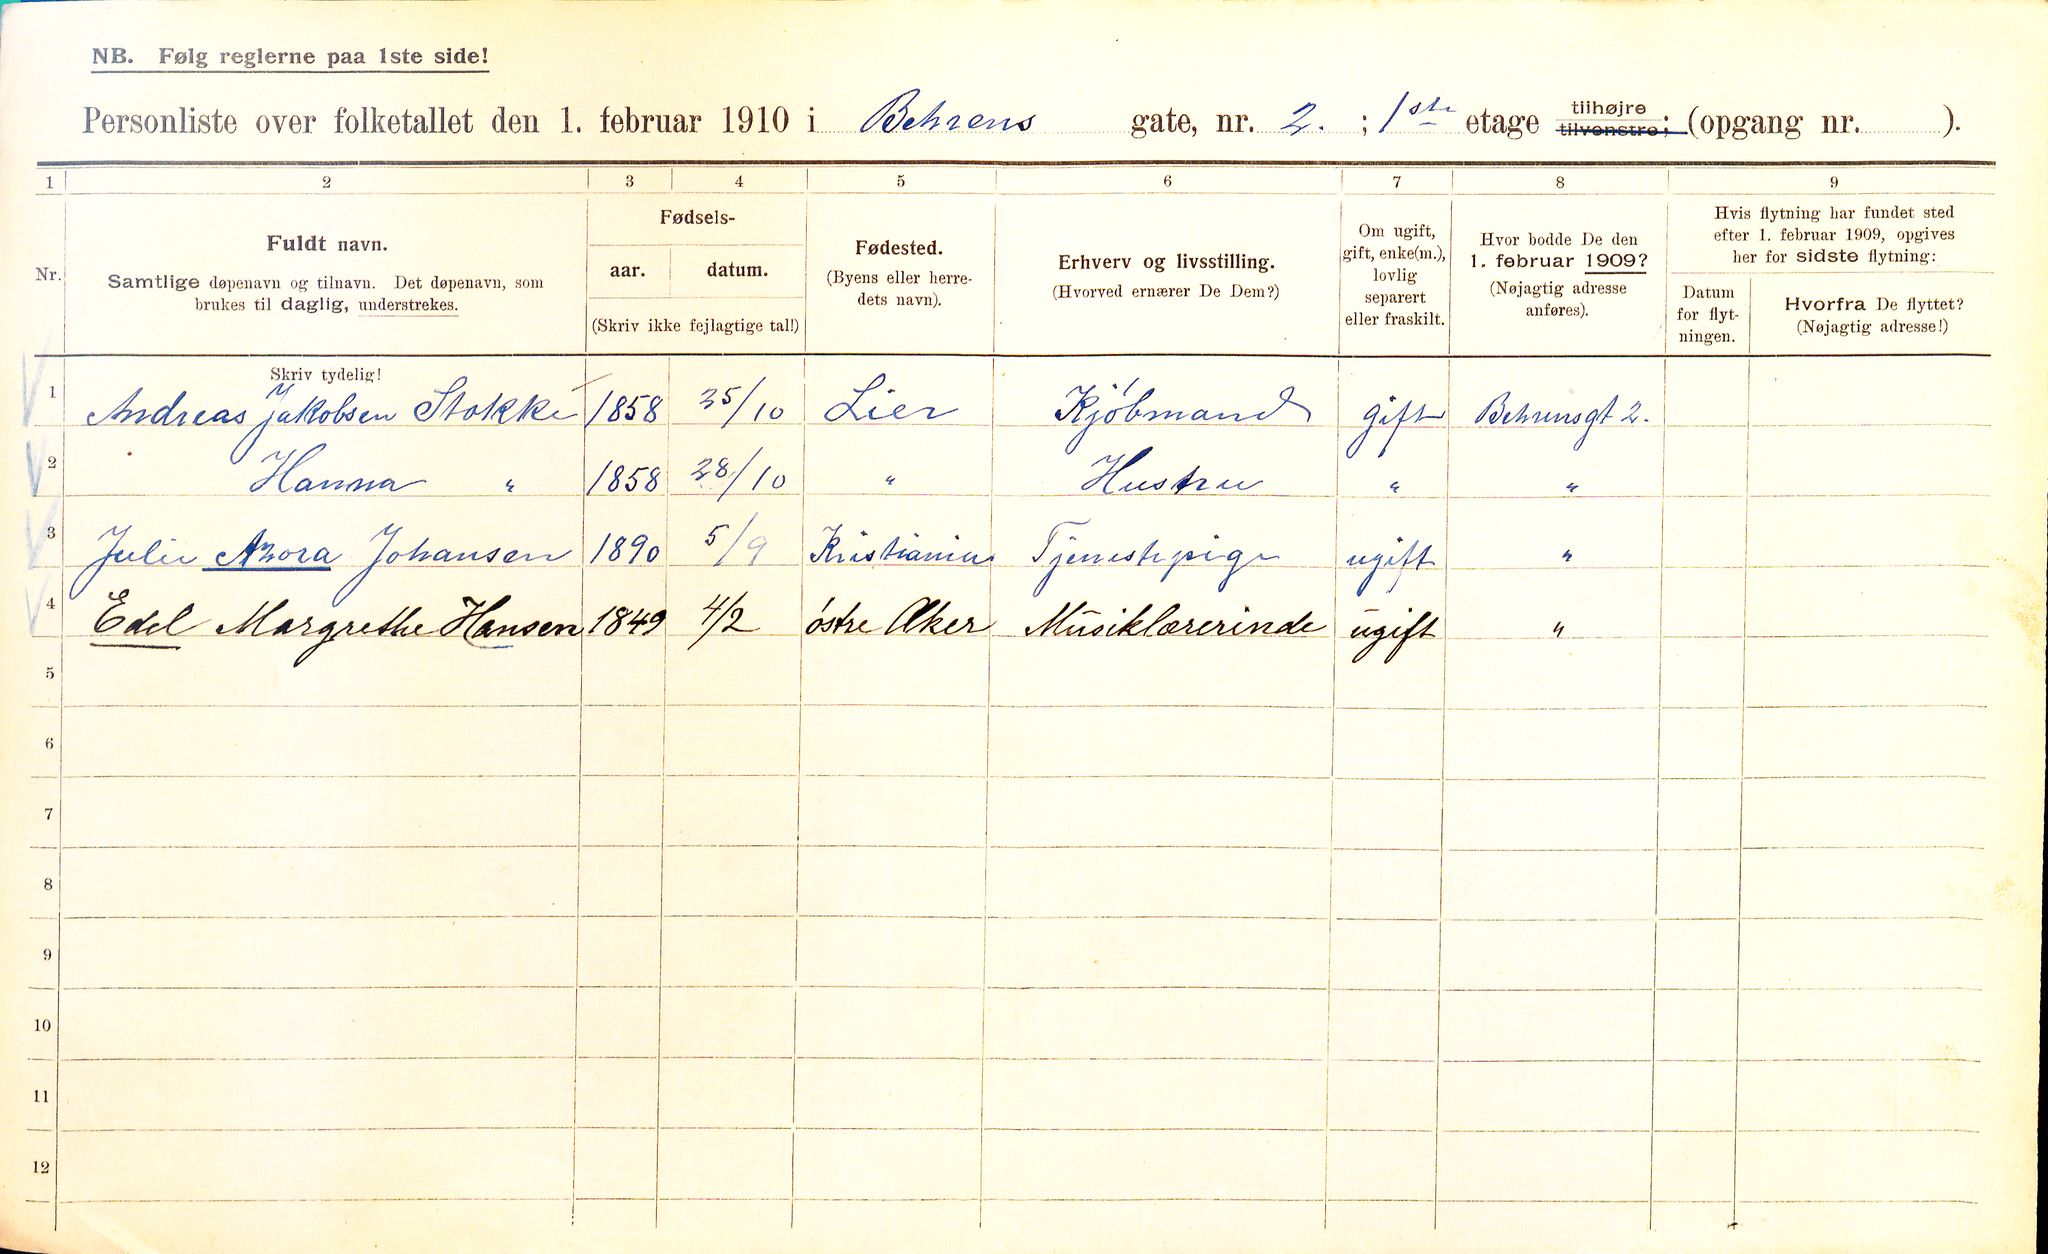 NB. Følg reglerne paa 1ste side!
Personliste over folketallet den 1. februar 1910 i Behrens gate, nr. 2. ; 1ste etage tilhøjre tilvenstre; (opgang nr. ).
1 2 3 4 5 6 7 8 9
Nr.
Fuldt navn.
Samtlige døpenavn og tilnavn. Det døpenavn, som
brukes til daglig, understrekes.
Fødsels-
aar. datum.
(Skriv ikke fejlagtige tal!)
Fødested.
(Byens eller herre-
dets navn).
Erhverv og livsstilling.
(Hvorved ernærer De Dem?)
Om ugift,
gift, enke(m.),
lovlig
separert
eller fraskilt.
Hvor bodde De den
1. februar 1909?
(Nøjagtig adresse
anføres).
Hvis flytning har fundet sted
efter 1. februar 1909, opgives
her for sidste flytning:
Datum
for flyt-
ningen.
Hvorfra De flyttet?
(Nøjagtig adresse!)
Skriv tydelig!
1 Andreas Jakobsen Stokke 1858 25/10 Lier Kjøbmand gift Behrensgt 2.
2 Hanna " 1858 28/10 " Hustru " "
3 Julie Azora Johansen 1890 5/9 Kristiania Tjenestepige ugift "
4 Edel Margrethe Hansen 1849 4/2 østre Aker Musiklærerinde ugift "
5
6
7
8
9
10
11
12